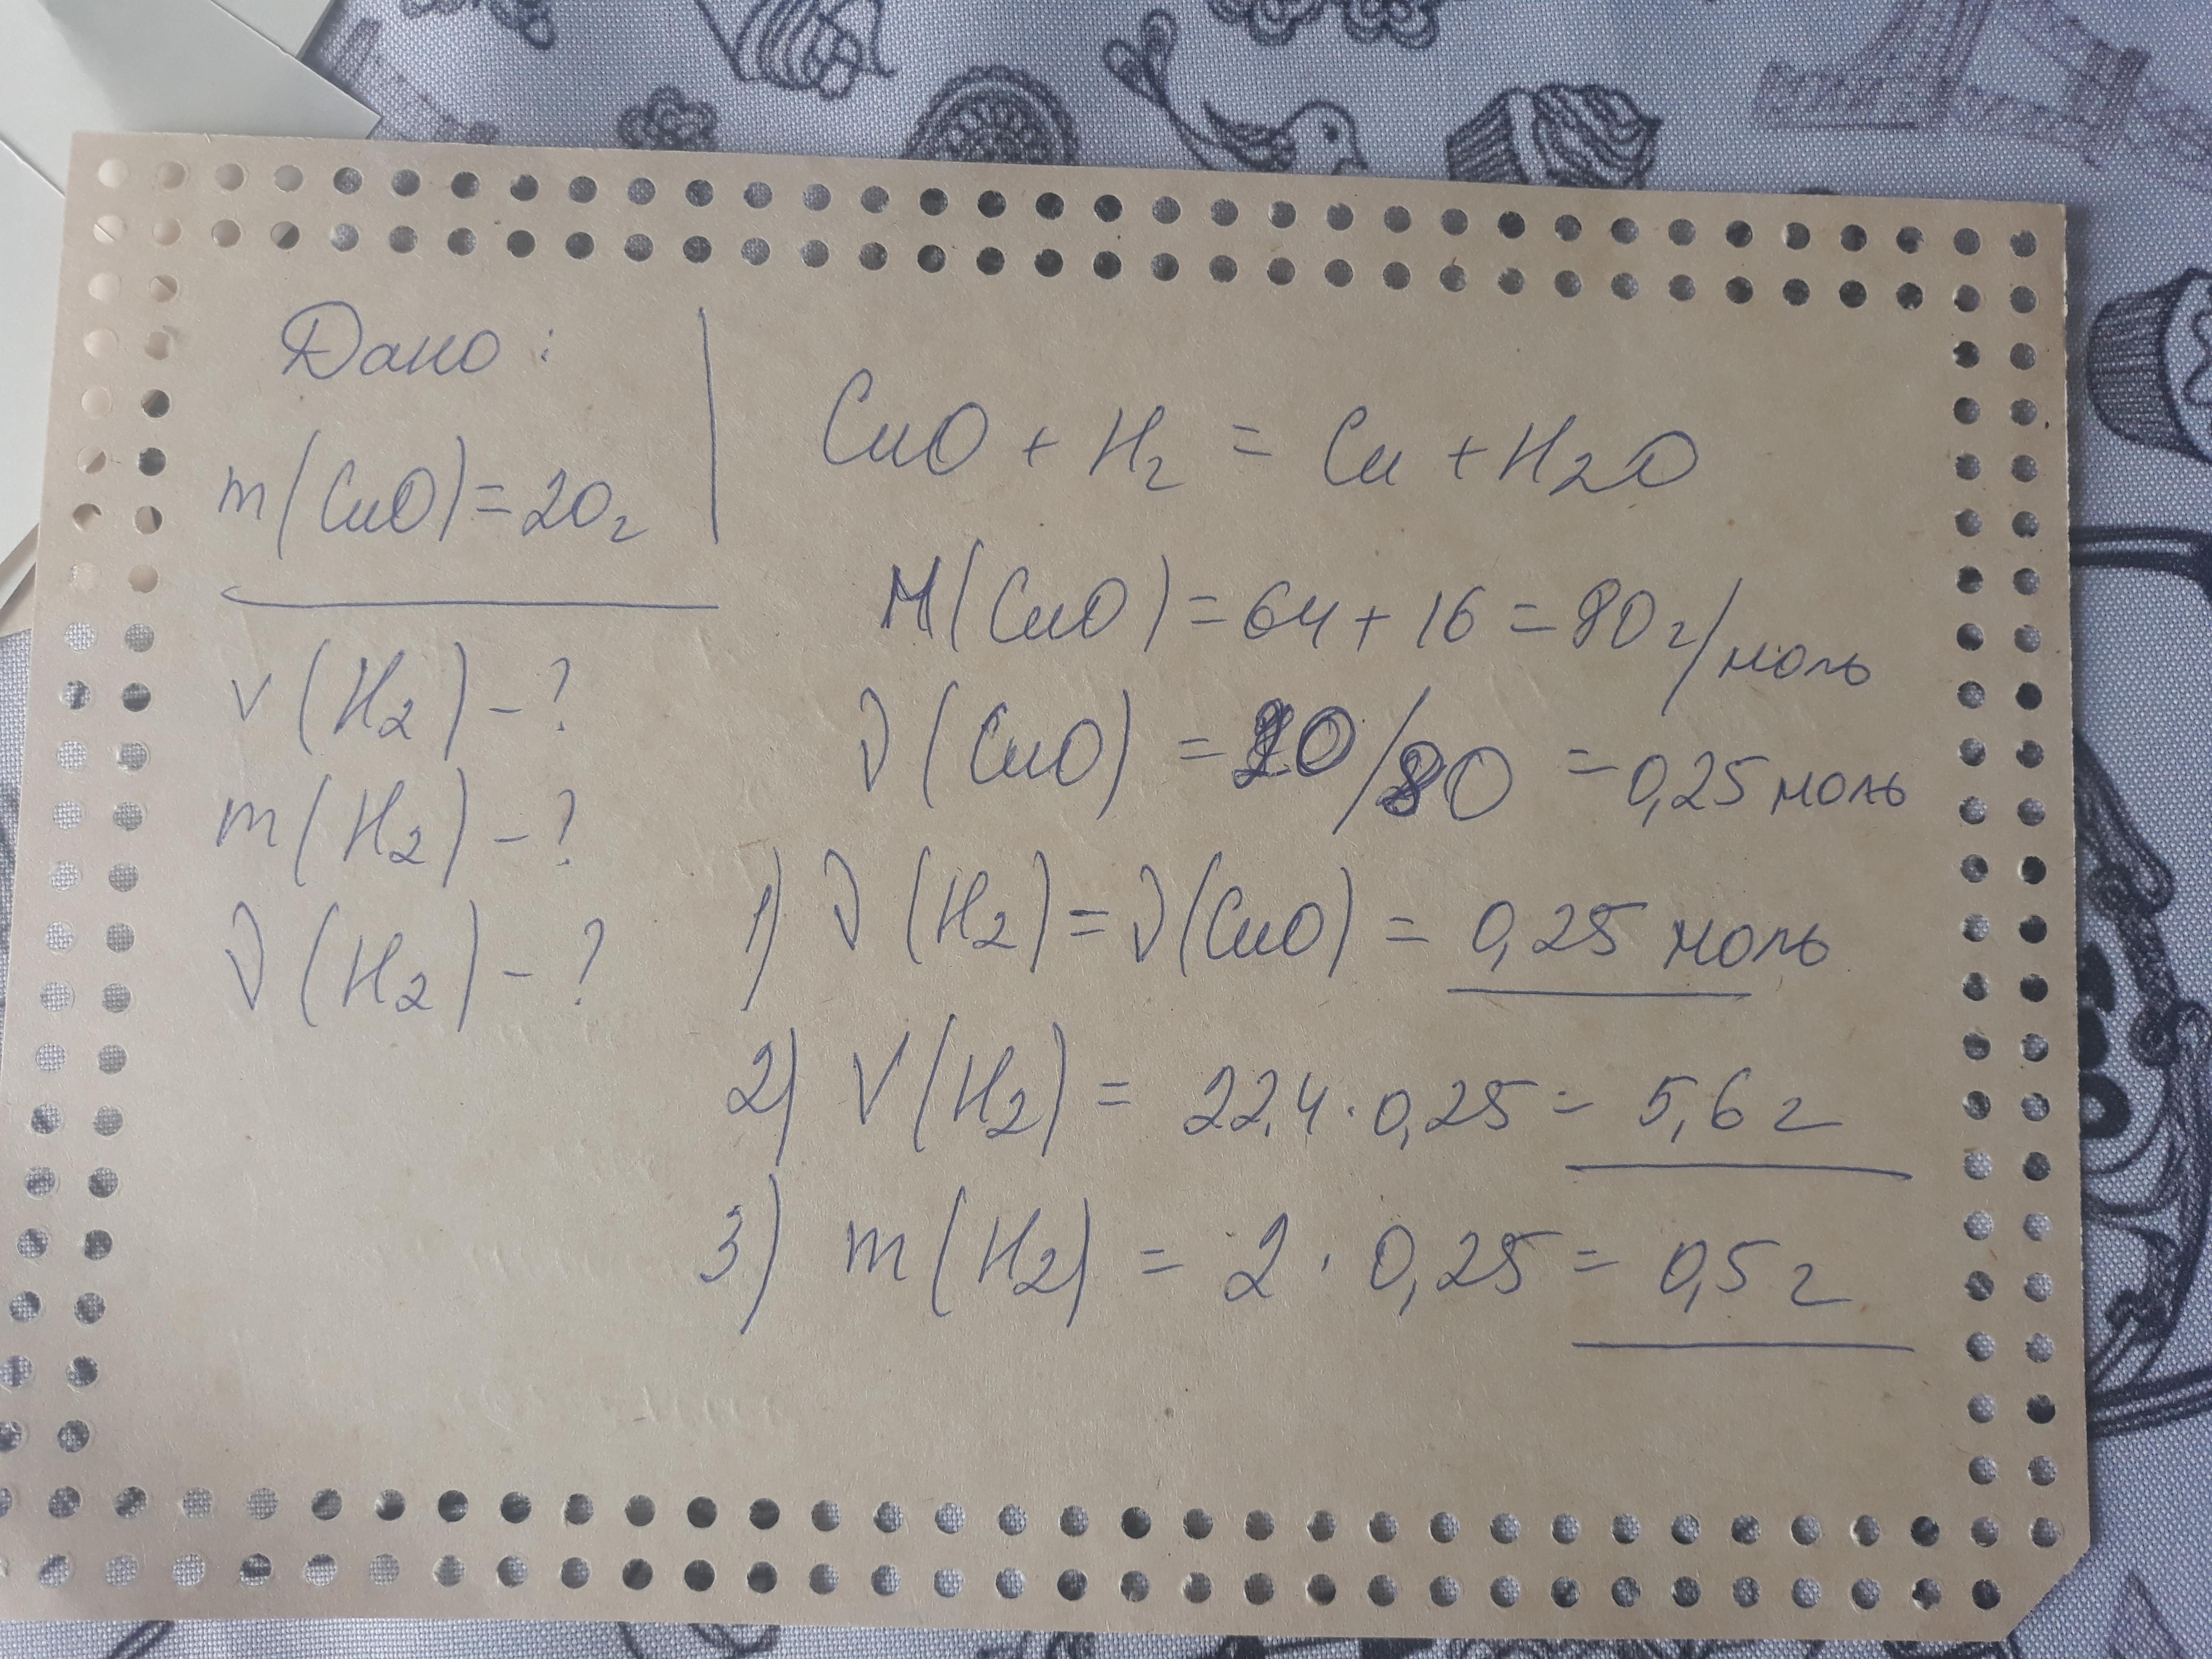 Дано:
m(CuO)=20г
V(H2)-?
m(H2)-?
ν(H2)-?
CuO + H2 = Cu + H2O
M(CuO)=64+16=80г/моль
ν(CuO)=20/80=0,25моль
1) ν(H2)=ν(CuO)=0,25 моль
2) V(H2)=22,4·0,25=5,6г
3) m(H2)=2·0,25=0,5г